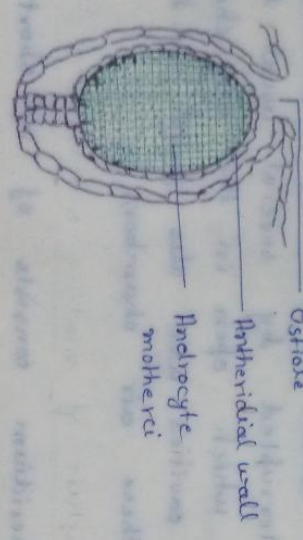 Ostiole
Antheridial wall
Androcyte
motherci